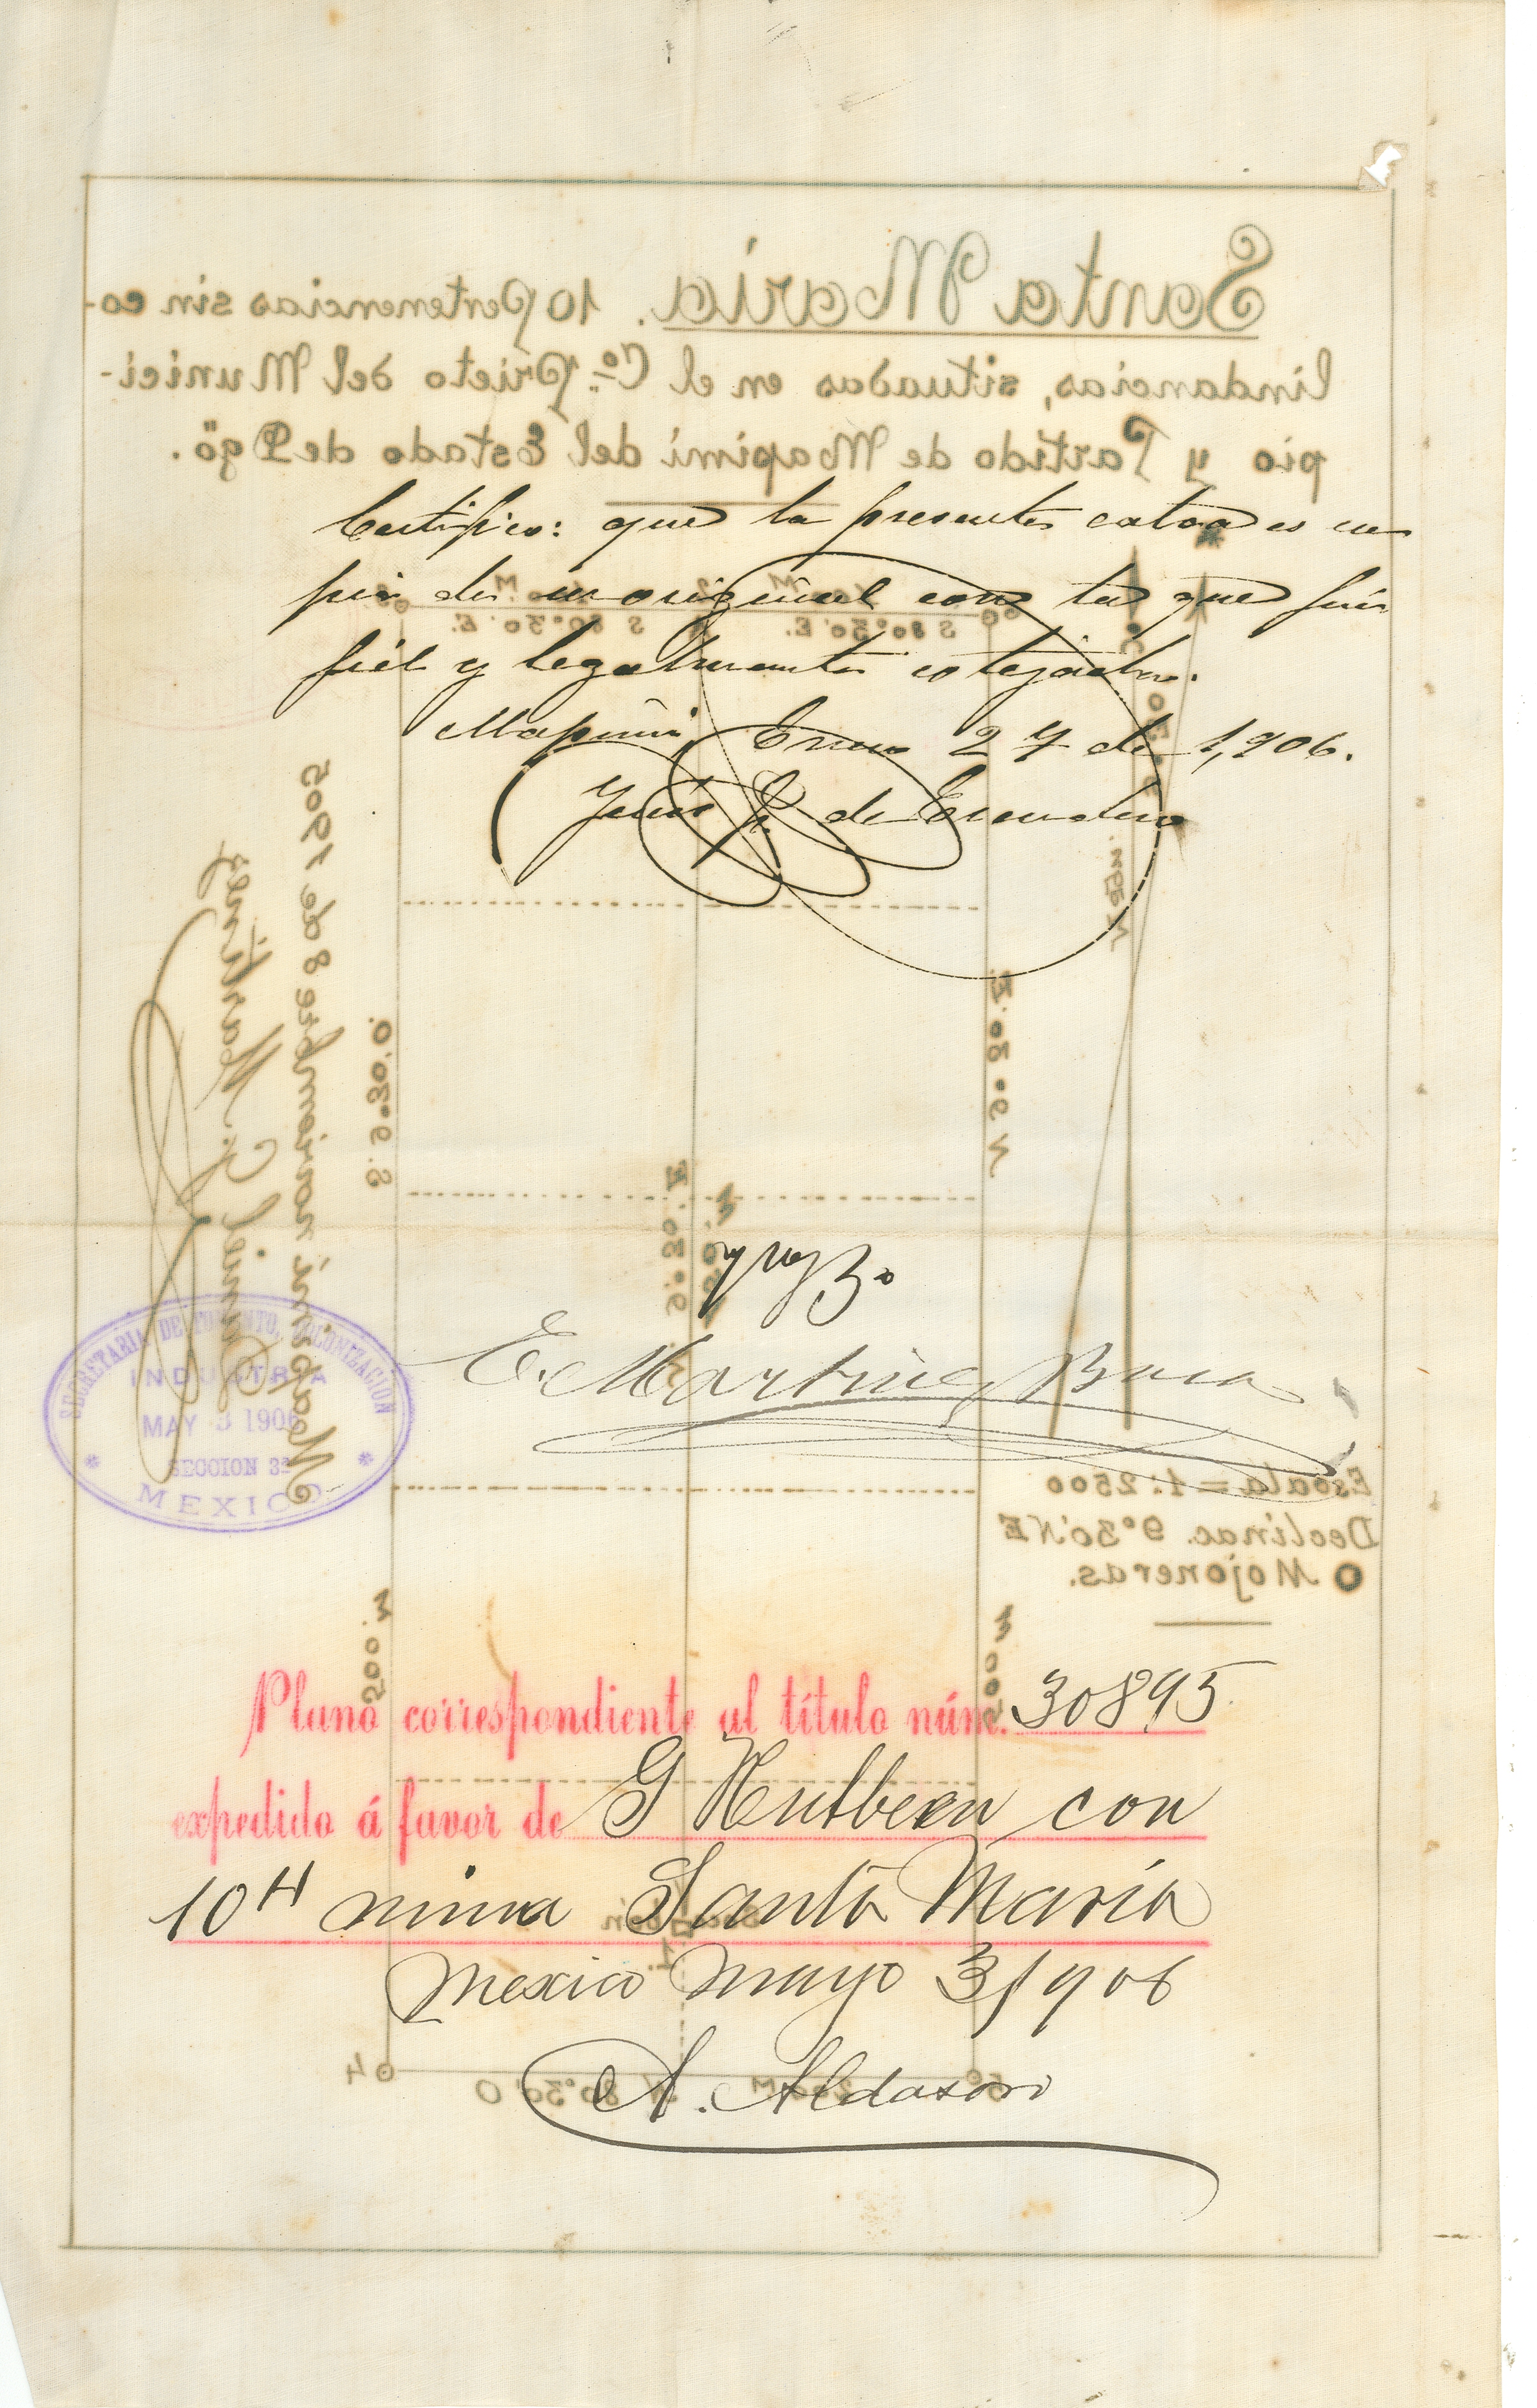 Santa María. 10 Pertenencias sin co-
lindancias, situadas en el Cº Prieto del Munici-
pio y Partido de Mapimí del Estado de Dgo.
Certifico: que la presente es co
pia de su original con la que fué
fiel y legalmente cotejada.
Mapimí, Enero 27 de 1,906.
de Escudero
S 80°30'E.
S 80°30'E.
N 9°30'E.
S. 9°30'O.
Mapimí noviembre 8 de 1905
Daniel Martínez
Vº Bº
E. Martinez Baca
SECRETARIA DE FOMENTO, COLONIZACION
INDUSTRIA
MAY 3 1906
SECCION 3ª
MEXICO
Escala = 1:2500
Declinac. 9°30'NE
O Mojoneras.
500 M.
Plano correspondiente al título núm. 30895
expedido á favor de G
con
10 H mina Santa María
Mexico mayo 3/906
4
N 80°30'O
A. Aldasoro